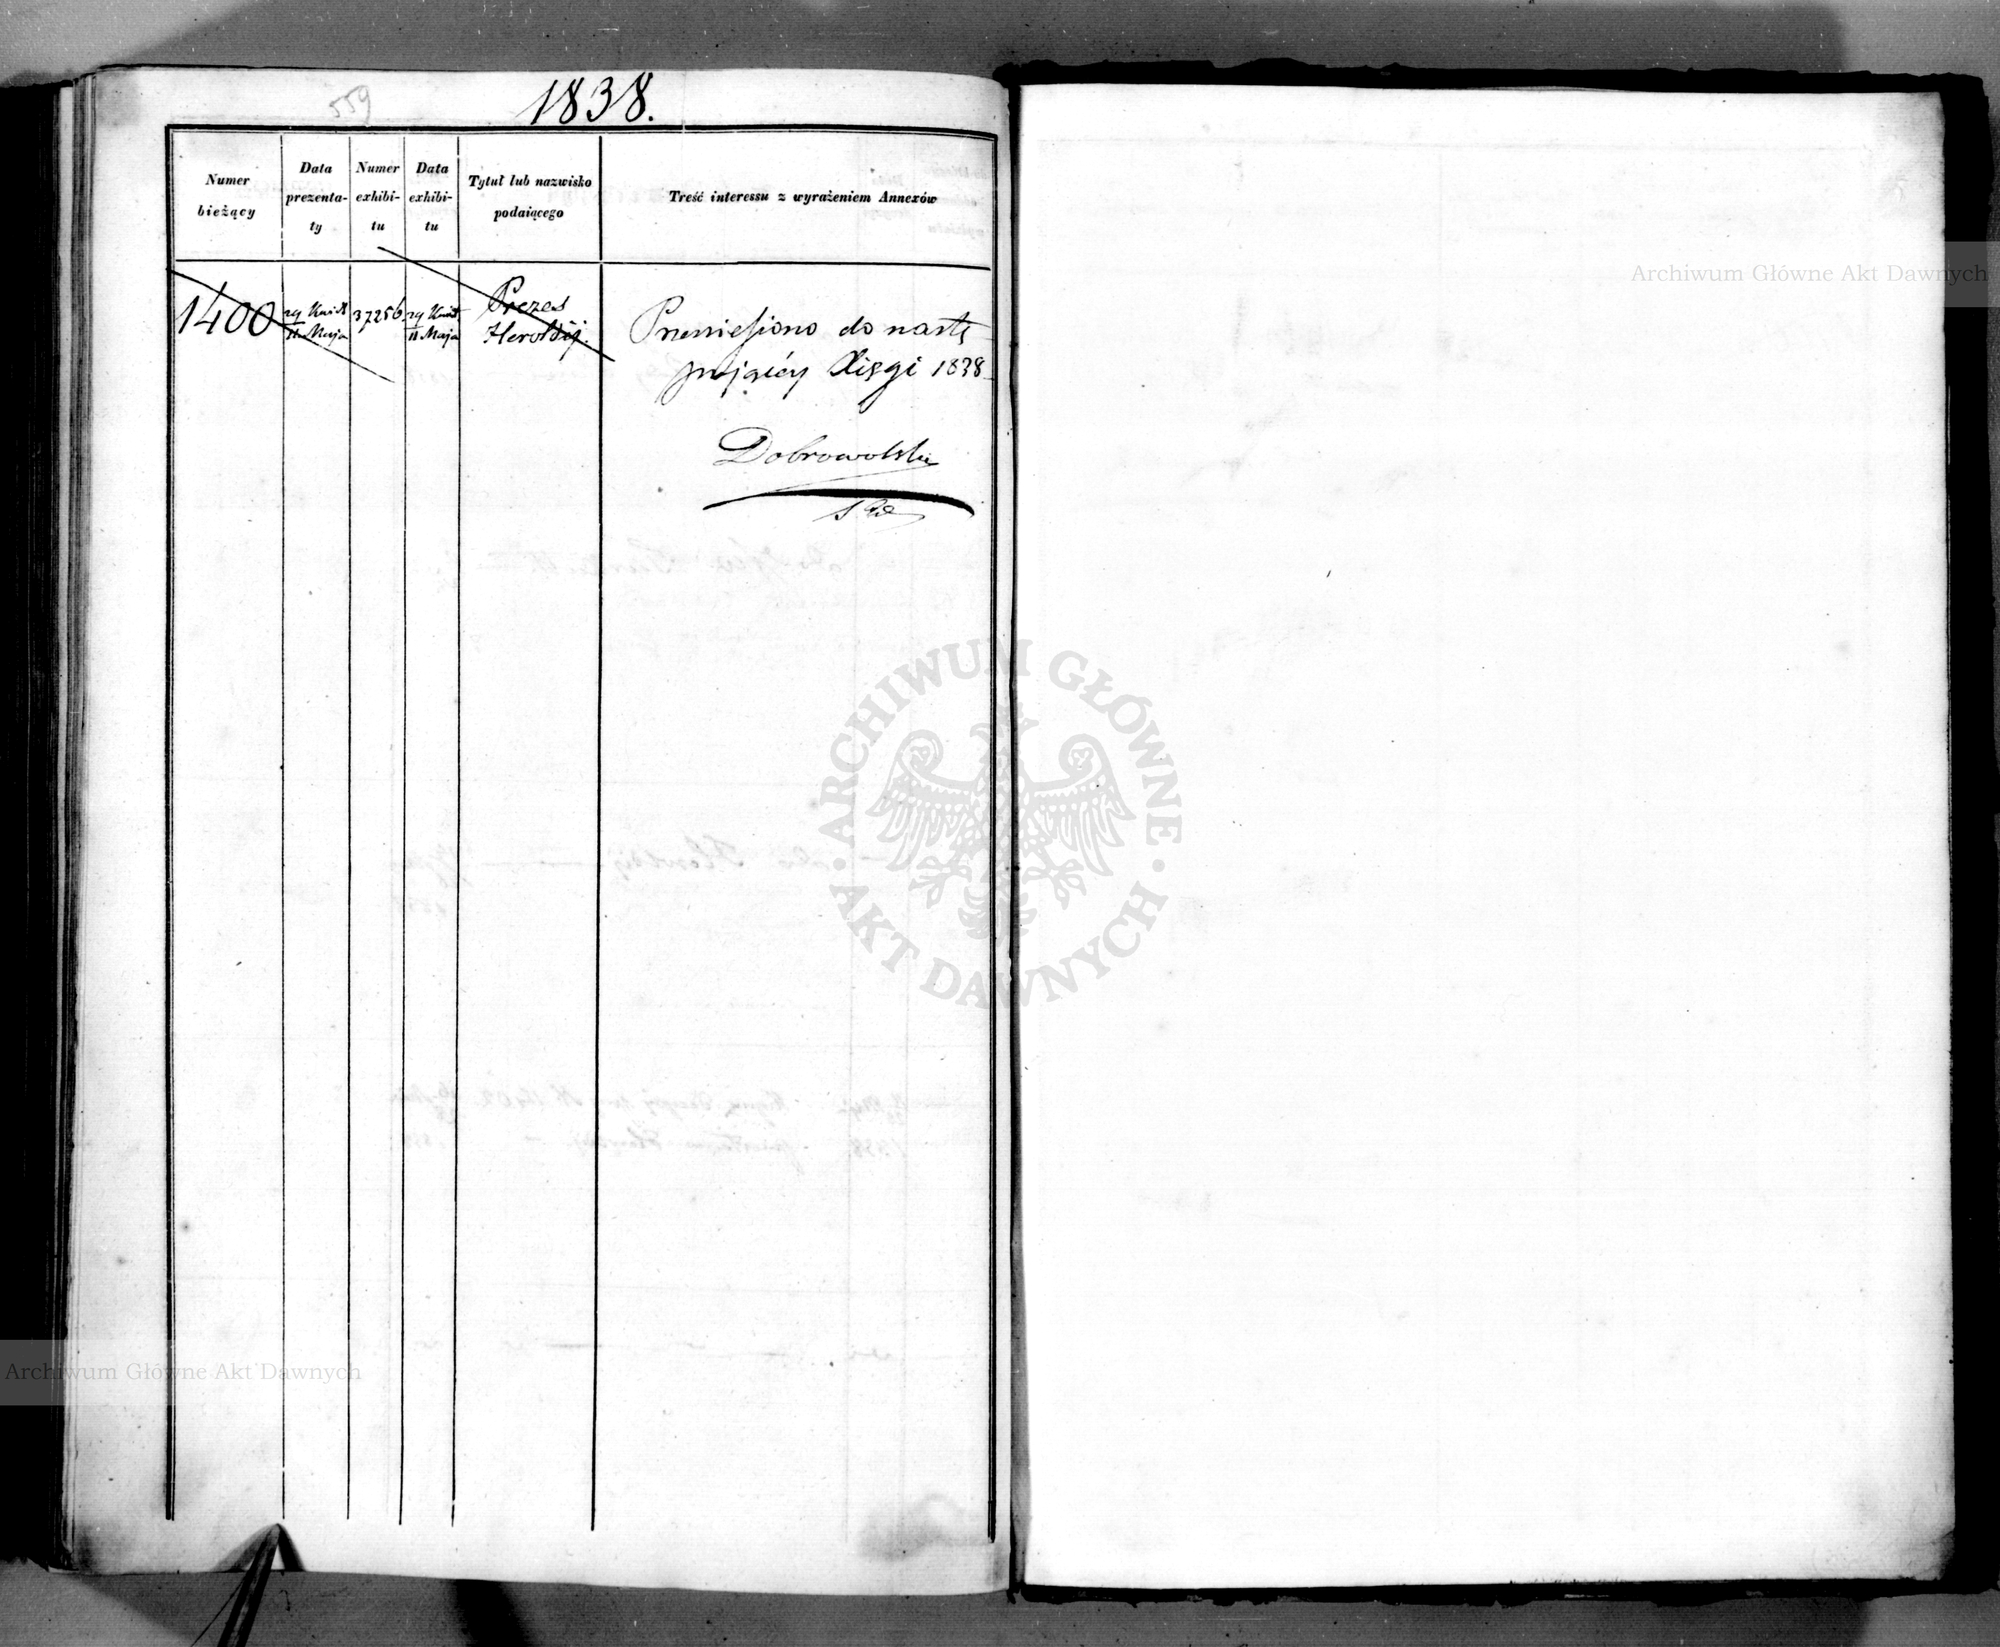 559
1838.
Numer
bieżący
Data
prezenta-
ty
Numer
exhibi-
tu
Data
exhibi-
tu
Tytuł lub nazwisko
podaiącego
Treść interessu z wyrażeniem Annexów
1400
29 Kwiet
11 Maja
37256
29 Kwiet
11 Maja
Prezes
Heroldij.
Przeniesiono do nastę
pującéy Xięgi 1838
Dobrowolski
ARCHIWUM GŁÓWNE
AKT DAWNYCH
Archiwum Główne Akt Dawnych
Archiwum Główne Akt Dawnych